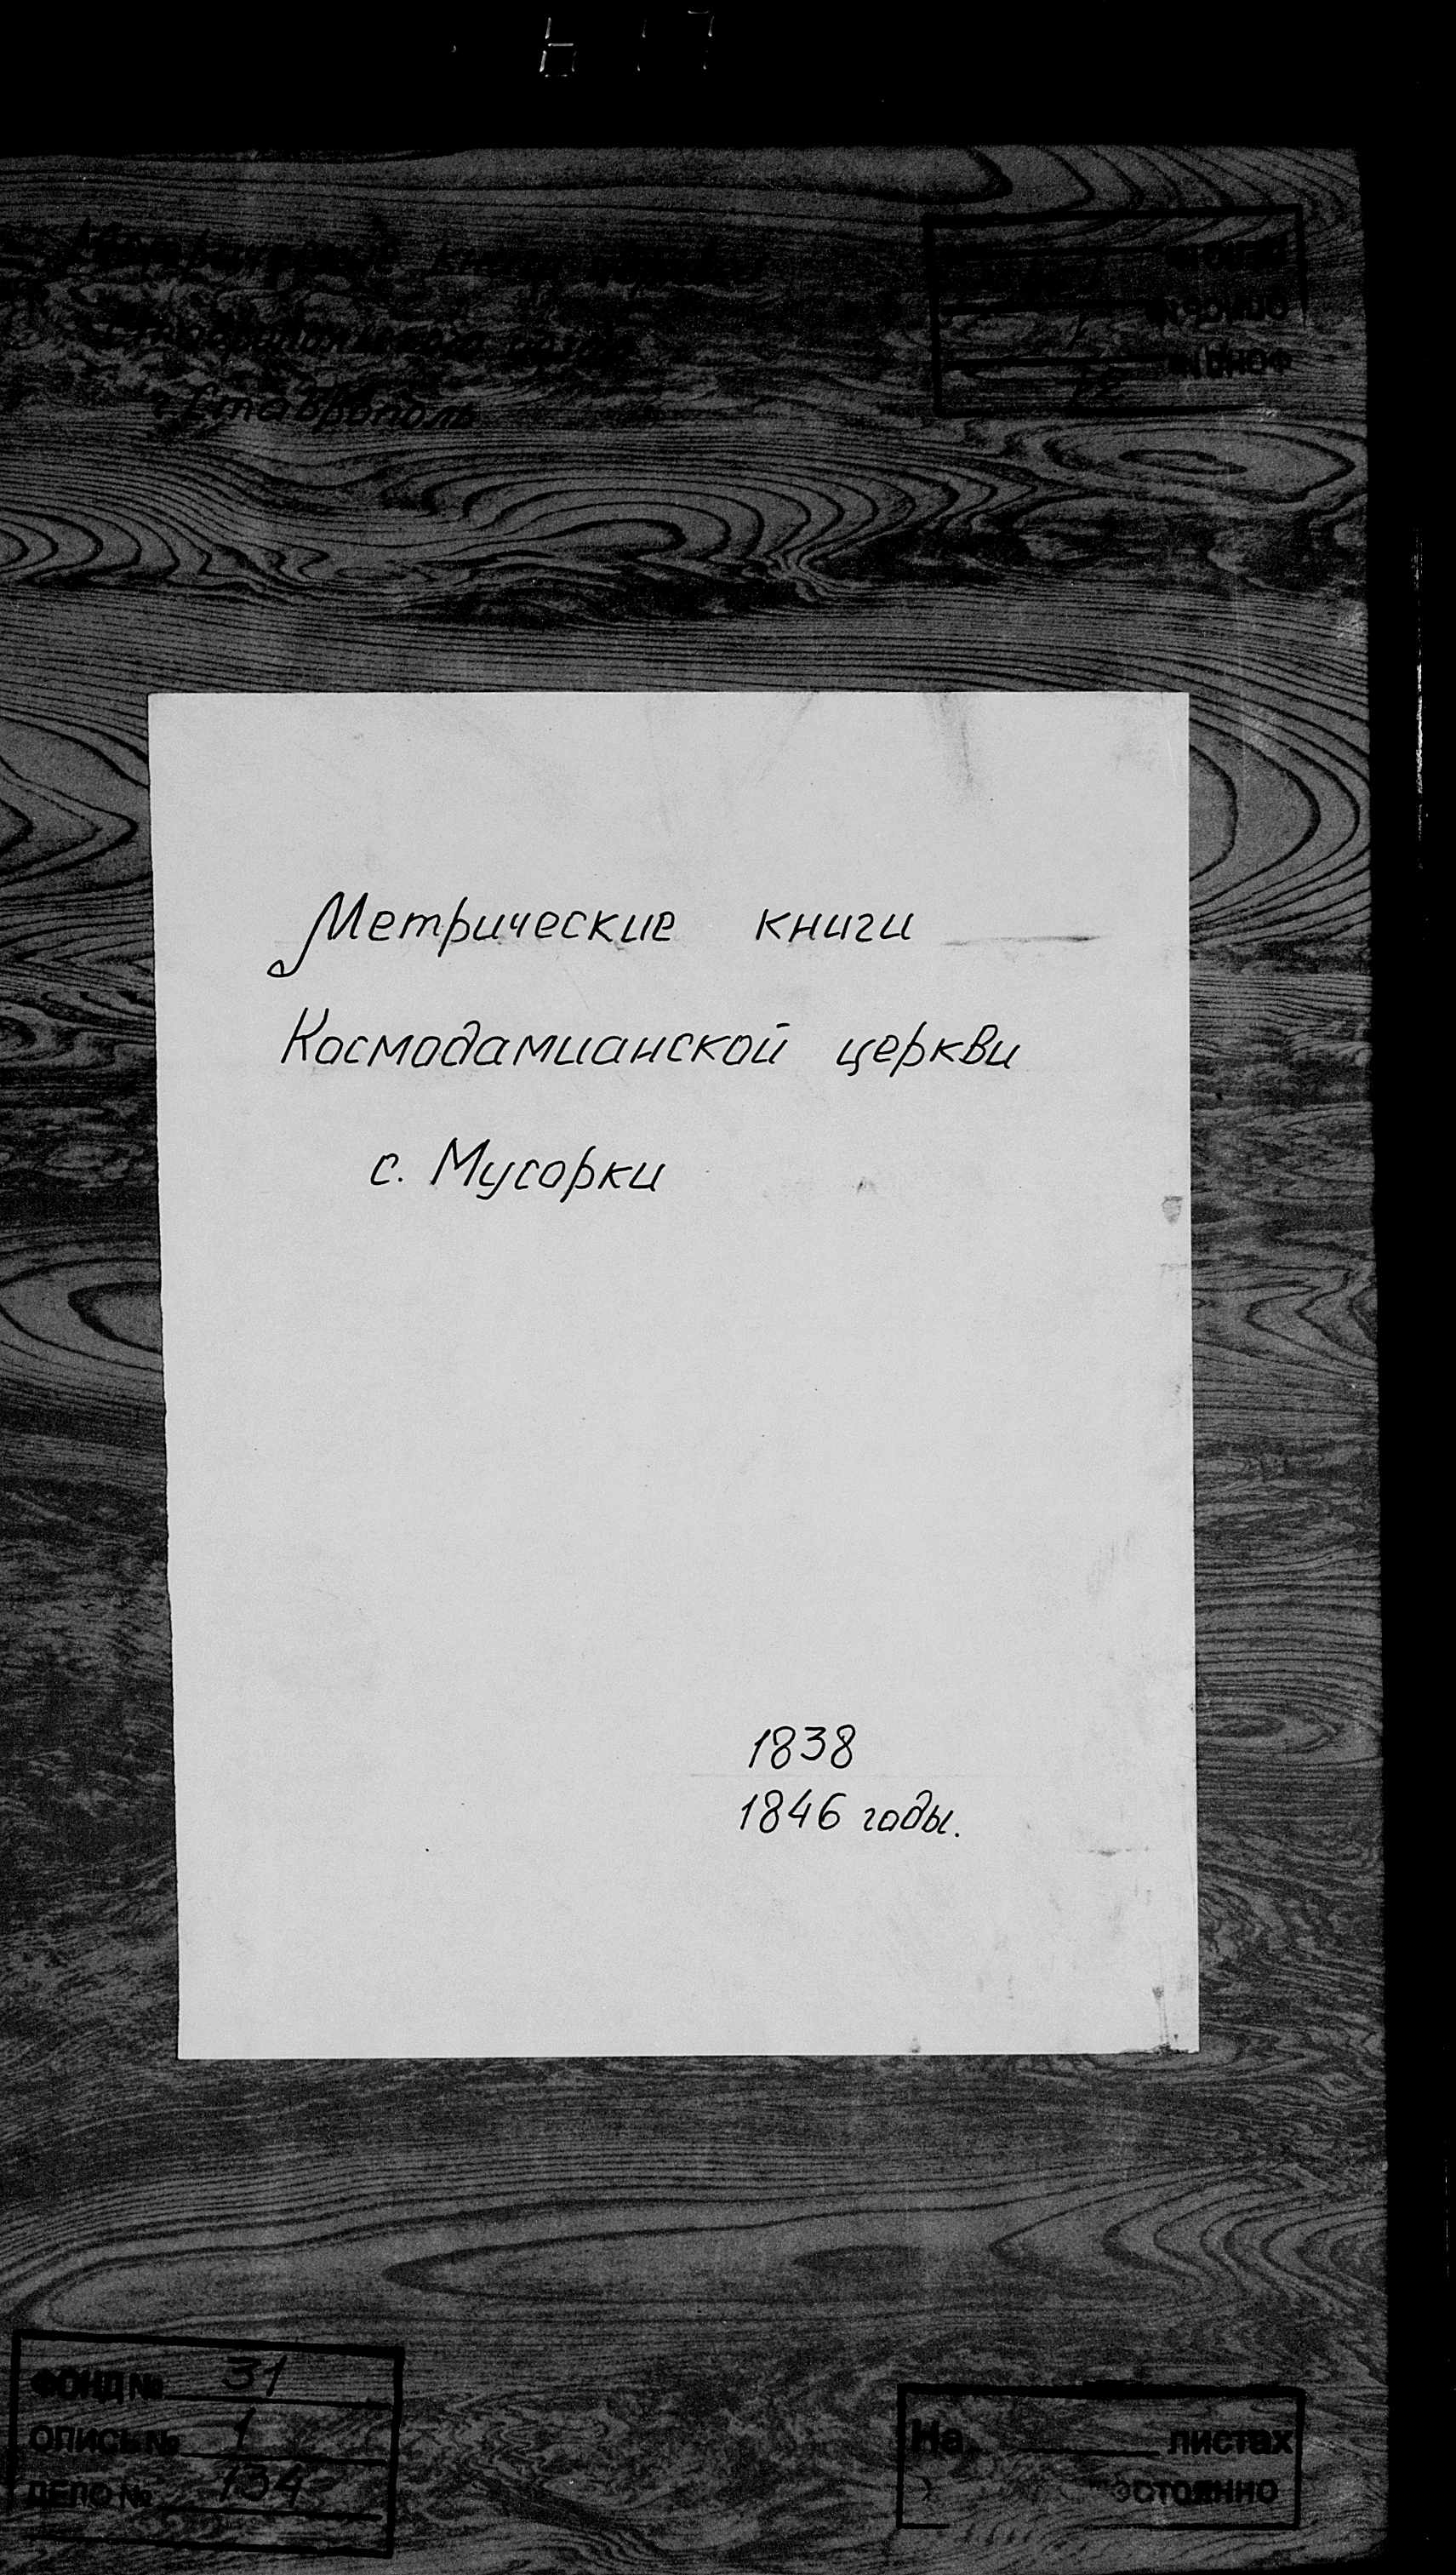 г. Ставрополь
Метрические книги
Космодамианской церкви
с. Мусорки
1838
1846 годы.
ФОНД № 31
ОПИСЬ № 1
ДЕЛО № 134
На листах